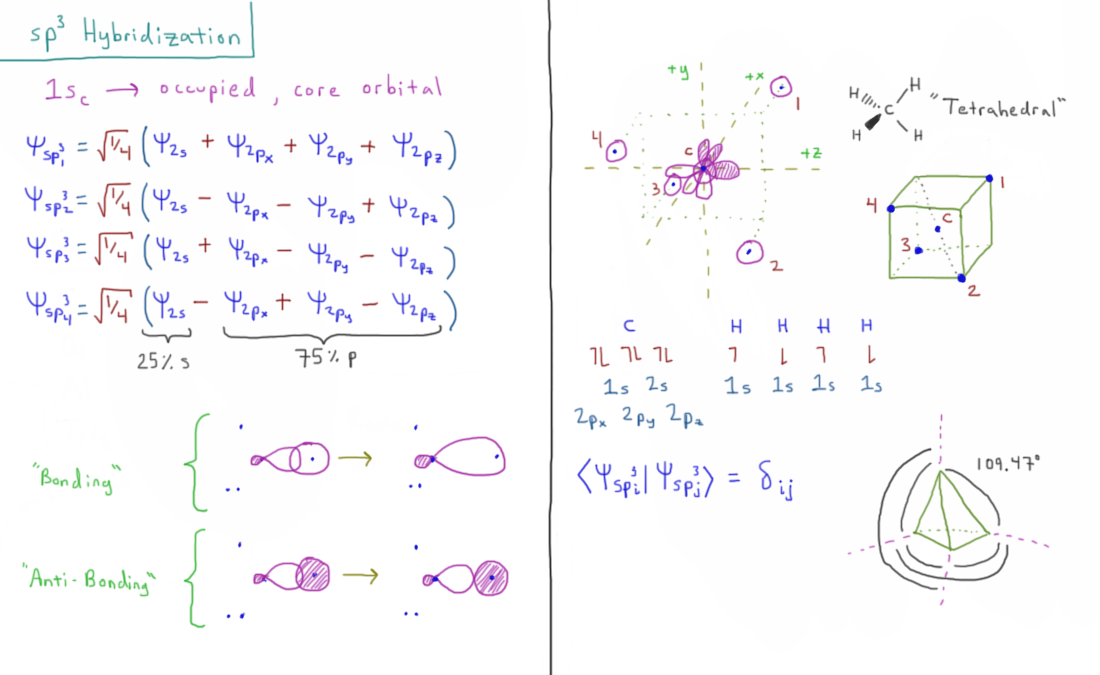 sp³ Hybridization
1s_c → occupied, core orbital
Ψ_sp³₁ = √¼ (Ψ_2s + Ψ_2px + Ψ_2py + Ψ_2pz)
Ψ_sp³₂ = √¼ (Ψ_2s − Ψ_2px − Ψ_2py + Ψ_2pz)
Ψ_sp³₃ = √¼ (Ψ_2s + Ψ_2px − Ψ_2py − Ψ_2pz)
Ψ_sp³₄ = √¼ (Ψ_2s − Ψ_2px + Ψ_2py − Ψ_2pz)
25% s 75% p
"Bonding"
"Anti-Bonding"
+y +x
1
4
c
+z
3
2
H H
C "Tetrahedral"
H H
1
4
c
3
2
C H H H H
⇃↾ ⇃↾ ⇃↾ ↿ ⇂ ↿ ⇂
1s 2s 1s 1s 1s 1s
2px 2py 2pz
⟨Ψ_sp³ᵢ|Ψ_sp³ⱼ⟩ = δᵢⱼ
109.47°